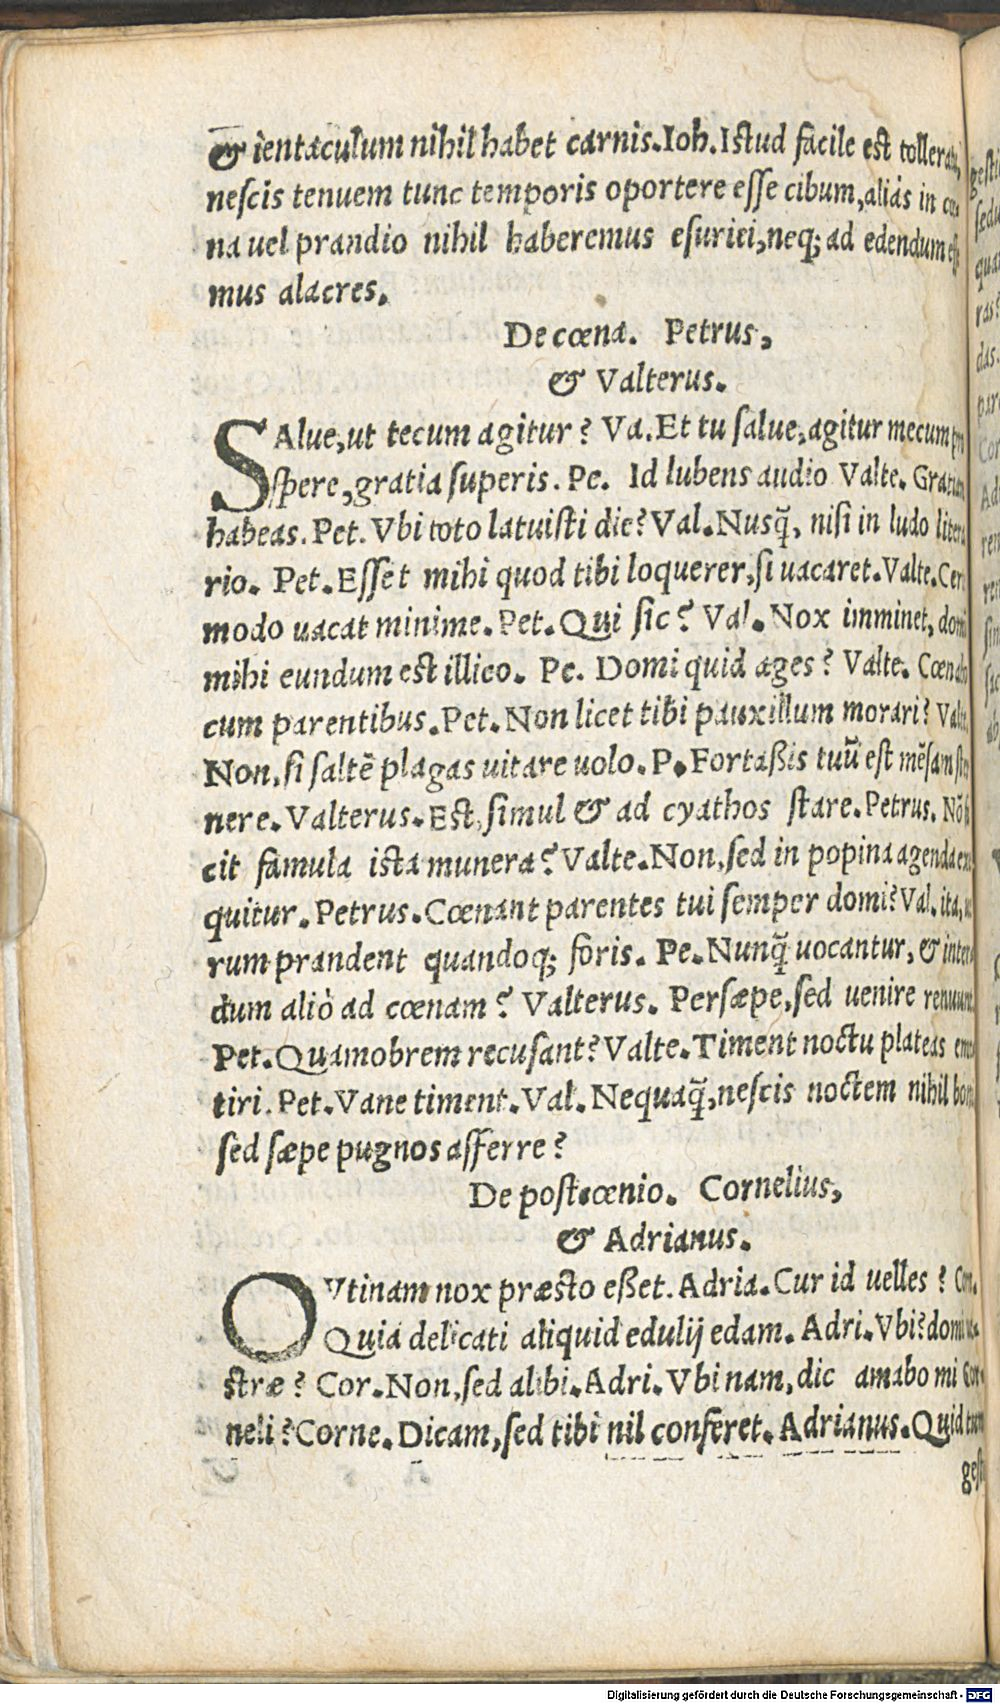 & ientaculum nihil habet carnis. Ioh. Istud facile est
nescis tenuem tunc temporis oportere esse cibum, aliás in
na uel prandio nihil haberemus esuriei, neq; ad edendum
mus alacres.
De cœna. Petrus,
& Valterus.
SAlue, ut tecum agitur? Va. Et tu salue, agitur mecum
spere, gratia superis. Pe. Id lubens audio Valte.
habeas. Pet. Vbi toto latuisti die? Val. Nusq̃, nisi in ludo
rio. Pet. Esset mihi quod tibi loquerer, si uacaret. Valte.
modo uacat minime. Pet. Qui sic? Val. Nox imminet,
mihi eundum est illico. Pe. Domi quid ages? Valte.
cum parentibus. Pet. Non licet tibi pauxillum morari?
Non, si saltẽ plagas uitare uolo. P. Fortaßis tuũ est mẽsam
nere. Valterus. Est, simul & ad cyathos stare. Petrus.
cit famula ista munera? Valte. Non, sed in popina agenda
quitur. Petrus. Cœnant parentes tui semper domi? Val. ita,
rum prandent quandoq; foris. Pe. Nunq̃ uocantur, &
dum aliò ad cœnam? Valterus. Persæpe, sed uenire
Pet. Quamobrem recusant? Valte. Timent noctu plateas
tiri. Pet. Vane timent. Val. Nequaq̃, nescis noctem nihil
sed sæpe pugnos afferre?
De postcœnio. Cornelius,
& Adrianus.
O Vtinam nox præsto eßet. Adria. Cur id uelles?
Quia delicati aliquid edulij edam. Adri. Vbi?
stræ? Cor. Non, sed alibi. Adri. Vbi nam, dic amabo mi
neli? Corne. Dicam, sed tibi nil conferet. Adrianus. Quid
Digitalisierung gefördert durch die Deutsche Forschungsgemeinschaft - DFG